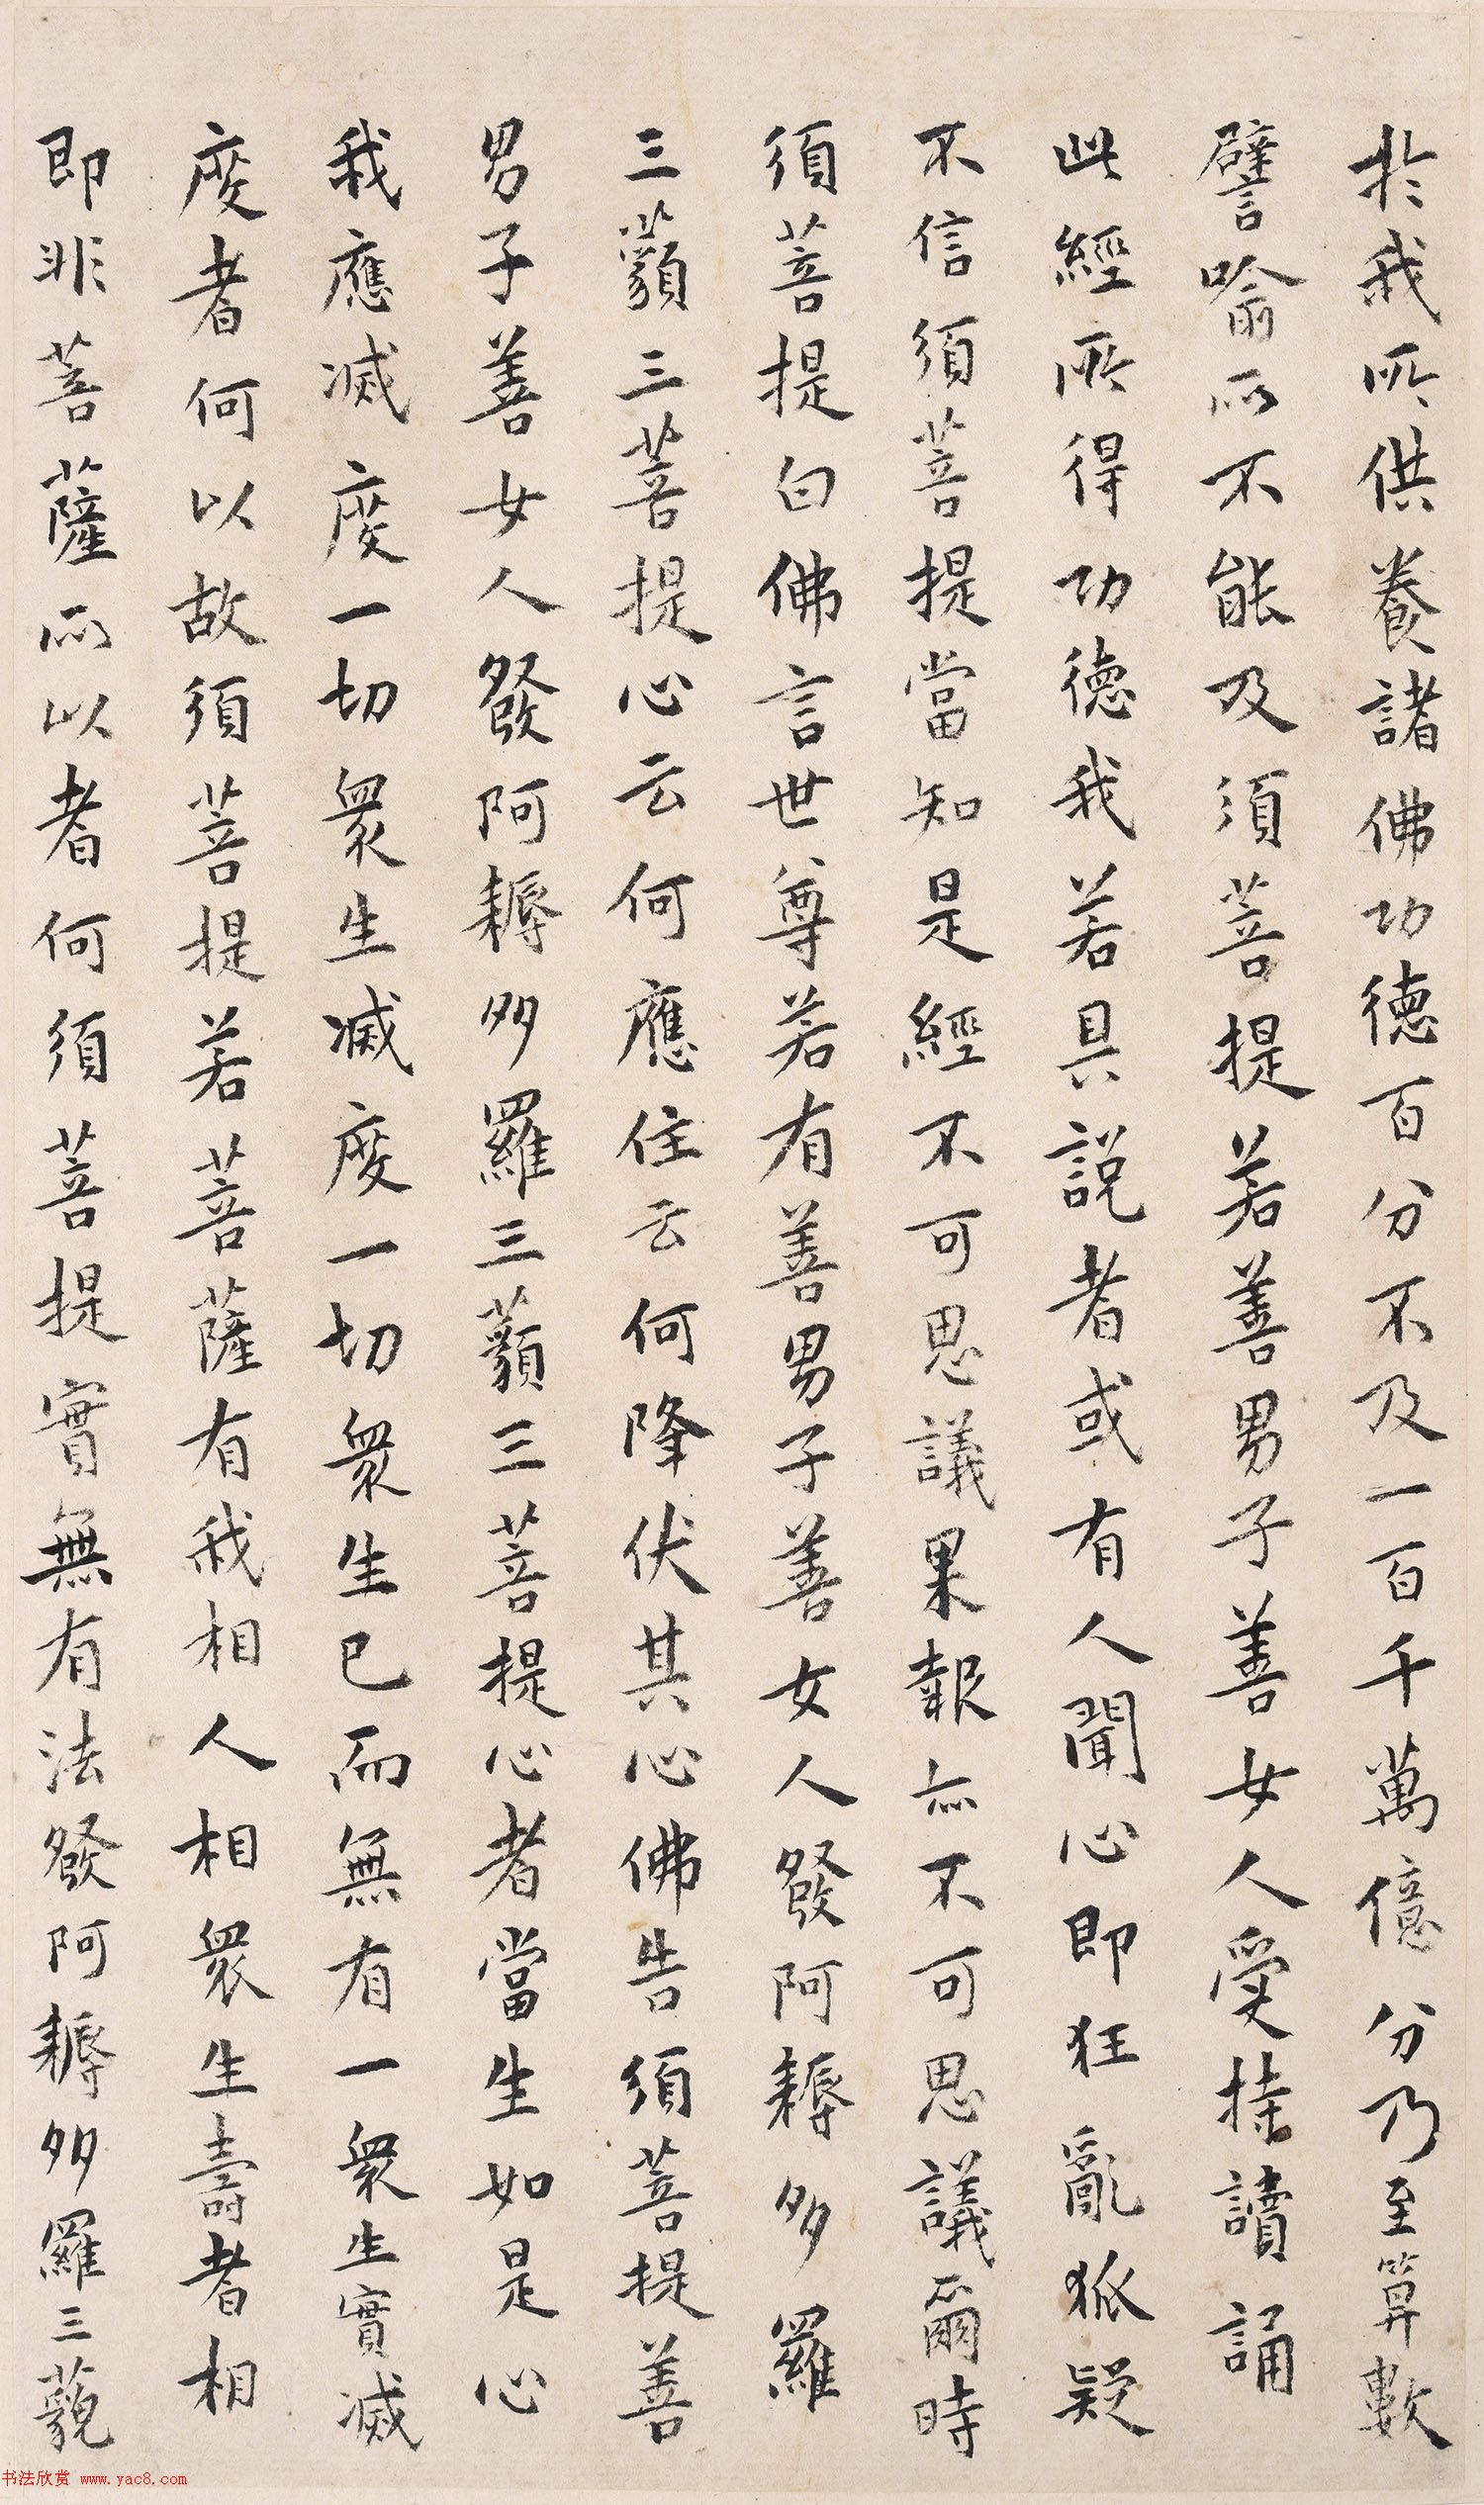 於我所供養諸佛功德百分不及一百千萬億分乃至算數
譬喻所不能及須菩提若善男子善女人受持讀誦
此經所得功德我若具說者或有人聞心即狂亂狐疑
不信須菩提當知是經不可思議果報亦不可思議爾時
須菩提白佛言世尊若有善男子善女人發阿耨多羅
三藐三菩提心云何應住云何降伏其心佛告須菩提善
男子善女人發阿耨多羅三藐三菩提心者當生如是心
我應滅度一切眾生滅度一切眾生已而無有一眾生實滅
度者何以故須菩提若菩薩有我相人相眾生壽者相
即非菩薩所以者何須菩提實無有法發阿耨多羅三藐
书法欣赏 www.yac8.com